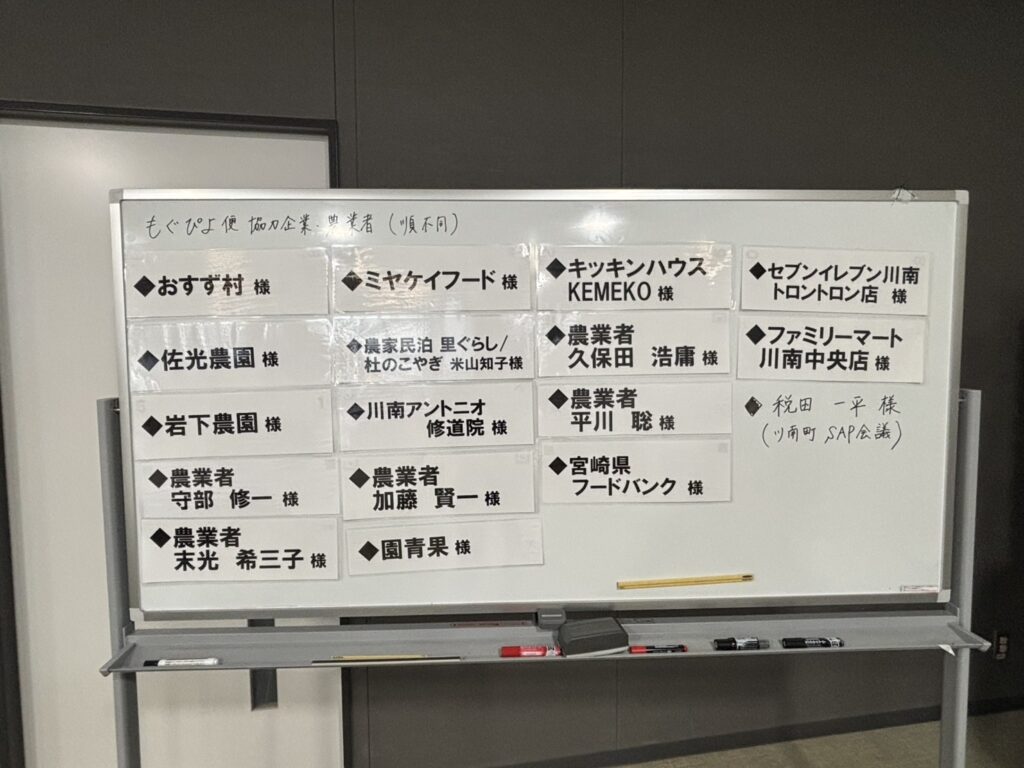 もぐぴよ便 協力企業、農業者 (順不同)
◆おすず村 様
◆佐光農園 様
◆岩下農園 様
◆農業者
守部 修一 様
◆農業者
末光 希三子 様
◆ミヤケイフード 様
◆農家民泊 里ぐらし/
杜のこやぎ 米山知子様
◆川南アントニオ
修道院 様
◆農業者
加藤 賢一 様
◆園青果 様
◆キッキンハウス
KEMEKO 様
◆農業者
久保田 浩庸 様
◆農業者
平川 聡 様
◆宮崎県
フードバンク 様
◆セブンイレブン川南
トロントロン店 様
◆ファミリーマート
川南中央店 様
◆税田 一平 様
(川南町 SAP会議)